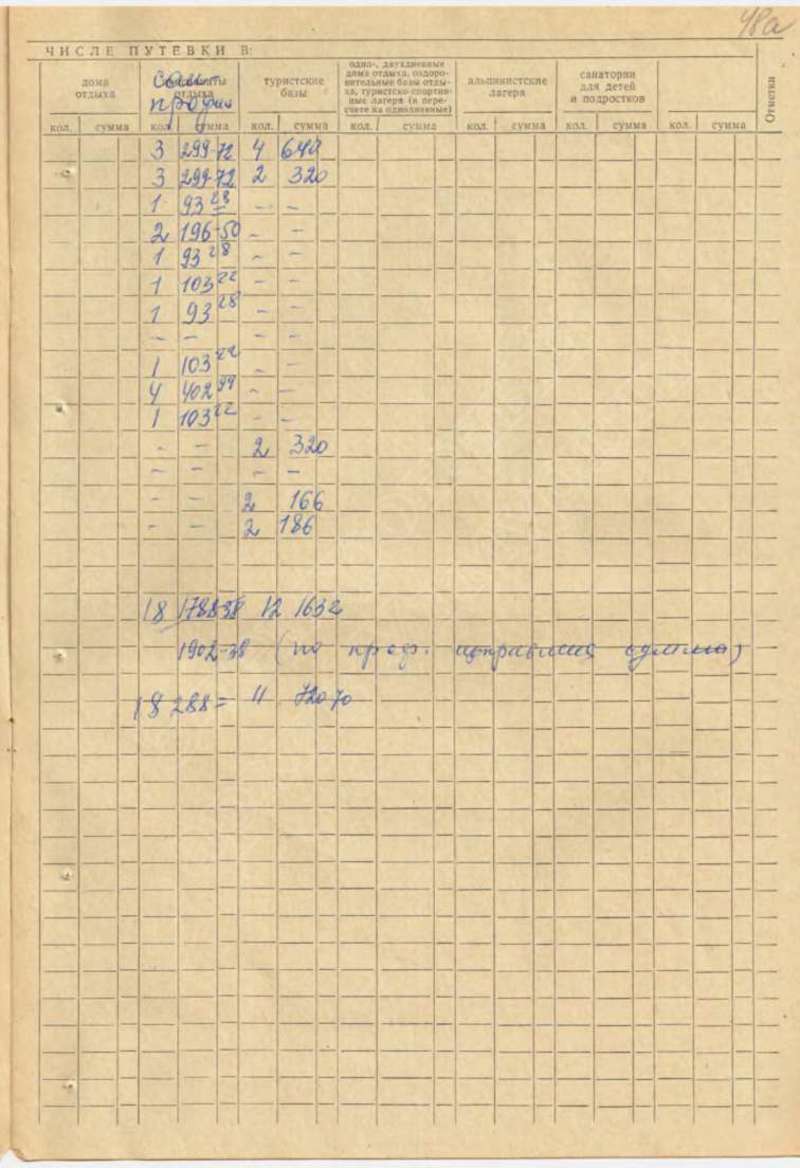 48а
ЧИСЛЕ ПУТЕВКИ В:
дома отдыха
пансионаты отдыха
туристские базы
одно-, двухдневные дома отдыха, оздоровительные базы отдыха, туристско-спортивные лагеря (в пересчете на однодневные)
альпинистские лагеря
санатории для детей и подростков
Отметка
кол. сумма кол. сумма кол. сумма кол. сумма кол. сумма кол. сумма кол. сумма
3 299-72 4 640
3 299-72 2 320
1 93 28 – –
2 196-50 – –
1 93 28 – –
1 103 22 – –
1 93 28 – –
– – – –
1 103 22 – –
4 402 99 – –
1 103 22 – –
– – 2 320
– – – –
– – 2 166
– – 2 186
18 1788-38 12 1632
1902-38 (по проф. исправлена сумма)
18 288= 11